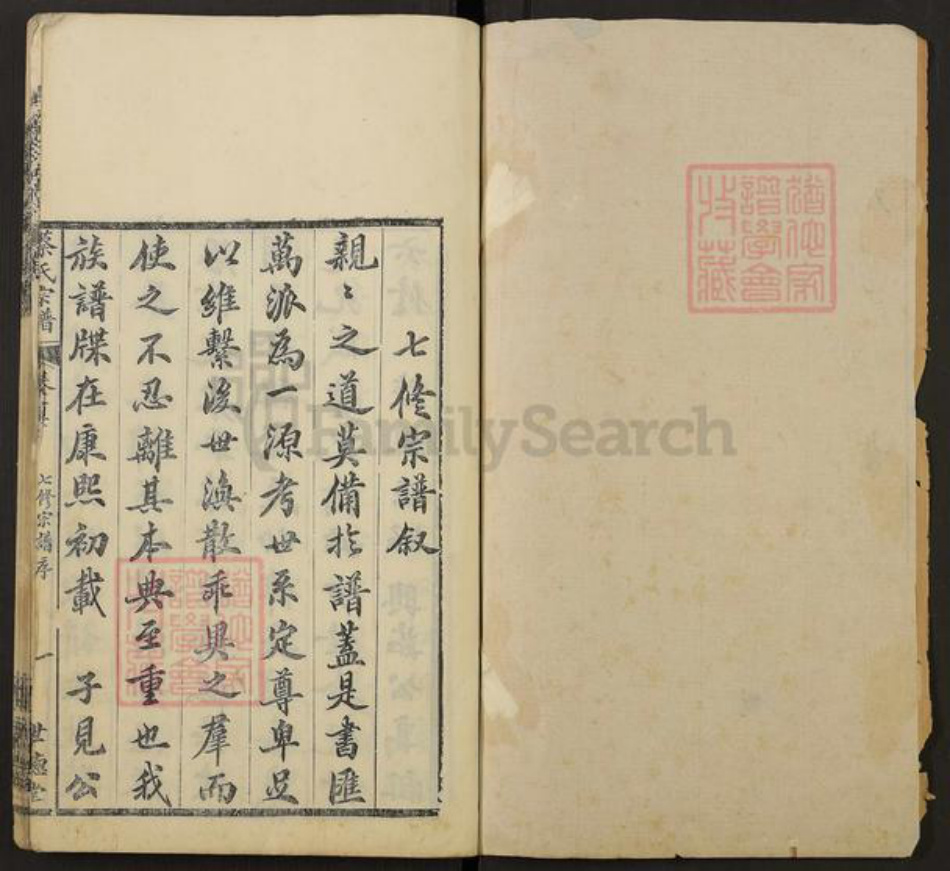 七修宗譜叙
親〻之道莫備於譜蓋是書匯
萬派為一源考世系定尊卑足
以維繫後世渙散乖異之羣而
使之不忍離其本典至重也我
族譜牒在康熙初載　子見公
蔡氏宗譜
卷首
七修宗譜序
一
世德堂
譜學會
收藏
FamilySearch